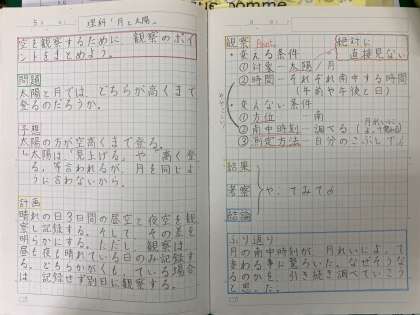 pomme
理科「月と太陽」
空を観察するために、観察のポイ
ントをまとめよう。
問題
太陽と月では、どちらが高くまで
登るのだろうか。
予想
太陽の方が空高くまで登る。
太陽は「見上げる」や「高く登
る」等言われるが、月を同じよ
うに言わないから。
計画
晴れの日3日間の昼空と夜空を観
察し記録する。そして、その差を
明らかにする。ただし、観察は、
昼も夜も晴れている日のみ記録す
る。どちらかがくもっている場合
は記録せず別日に観察する。
観察 Point
絶対に
直接見ない
・変える条件
①対象-太陽/月
②時間-それぞれ南中する時間
(午前や午後と日)
・変えない条件
①方位 南
②南中時刻-調べる
③測定方法-自分のこぶしで
結果
考察
やってみてol
結論
ふり返り
月の南中時刻が、月れいによって
変わる事に驚ろいた。なぜそうな
るのかを、引き続き調べていこう
と思った。